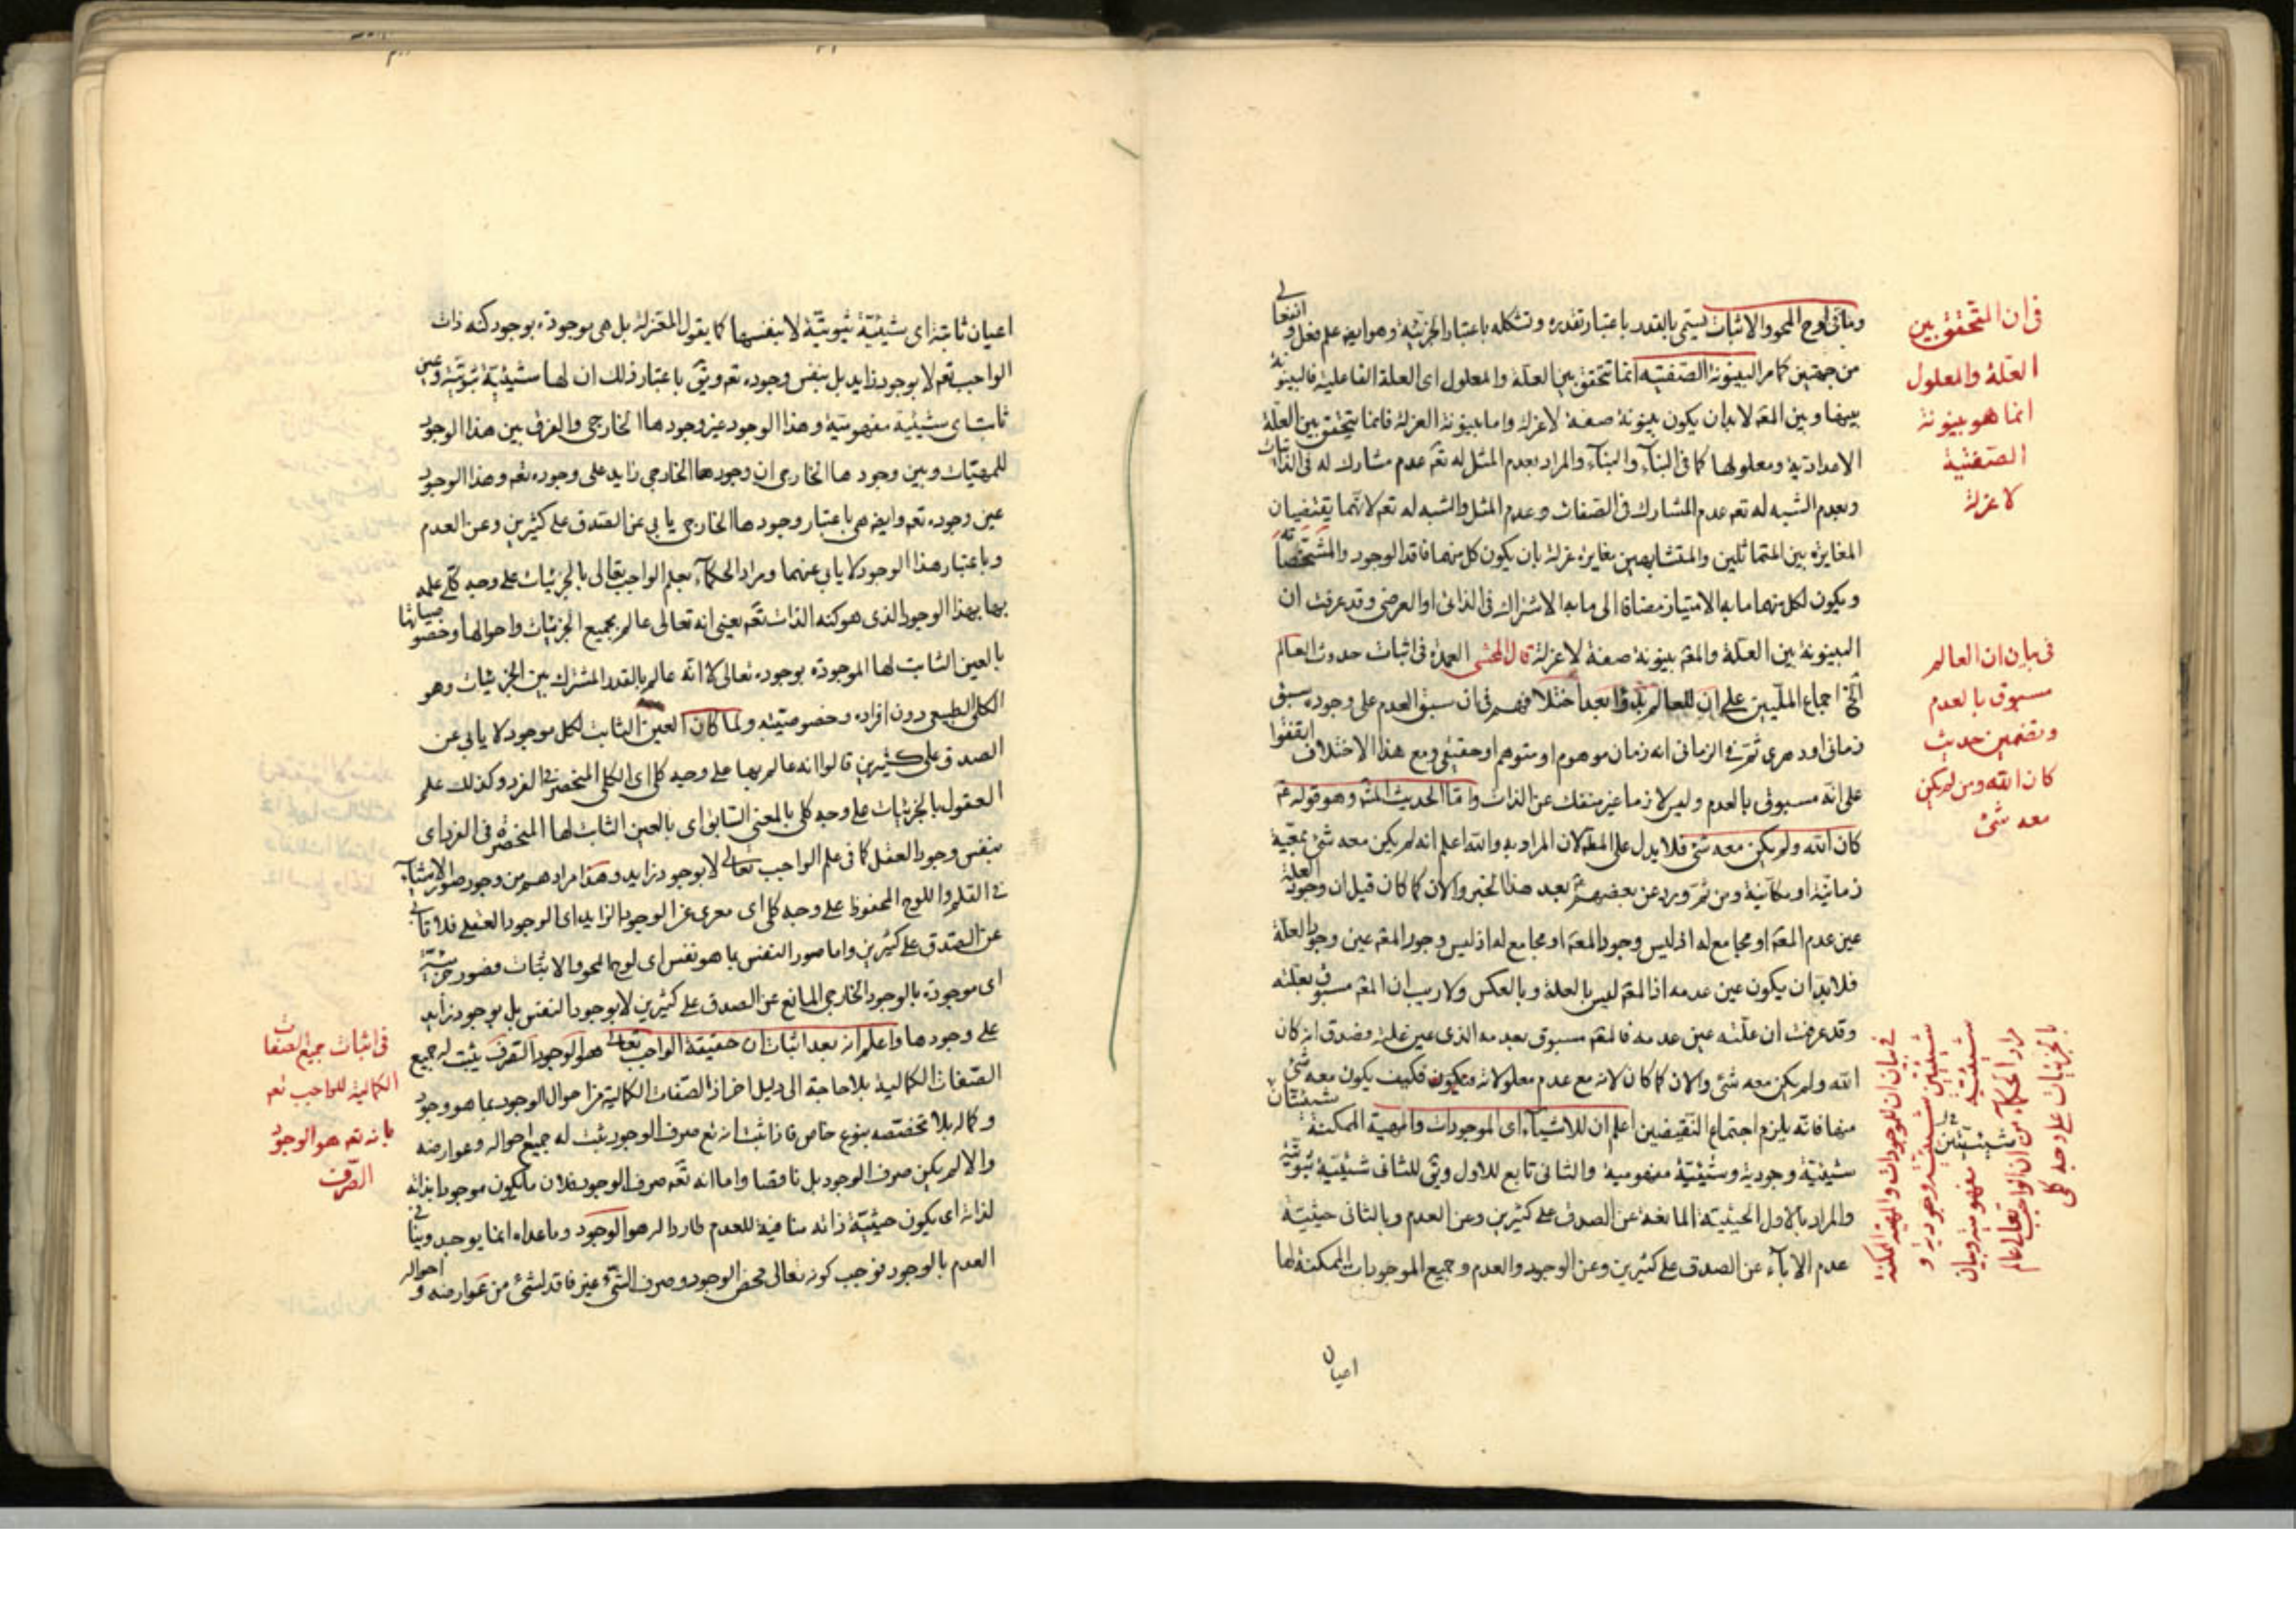 وما فى لوح المحو والاثبات يسمى بالقدر باعتبار تقدره وتشكله باعتبار الجزئية وهو ايضا علم فعلى وانفعالى
من جهتين كما مر البينونة الصفتيه انما تتحقق بين العلة والمعلول اى العلة الفاعلية فالبينونة
بينها وبين المعـ لابد ان يكون بينونة صفة لا عزلة واما بينونة العزلة فانما يتحقق بين العلة
الاعدادية ومعلولها كما فى البناء والبناء والمراد بعدم المثل له تعـ عدم مشارك له فى الذاتيات
وبعدم الشبه له تعـ عدم المشارك فى الصفات وعدم المثل والشبه له تعـ لانهما يقتضيان
المغايرة بين المتماثلين والمتشابهين مغايرة عزلة بان يكون كل منهما فاقد الوجود والتشخص
ويكون لكل منهما ما به الامتياز مضافا الى ما به الاشتراك فى الذاتى او العرضى وقد عرفت ان
البينونة بين العلة والمعـ بينونة صفة لا عزلة قال المحشى العمدة فى اثبات حدوث العالم
الخ اجماع المليين على ان للعالم بعد اختلافهم فى ان سبق العدم على وجوده سبق
زمانى او دهرى ثم فى الزمانى انه زمان موهوم او متوهم او حقيقى ومع هذا الاختلاف اتفقوا
على انه مسبوق بالعدم وليس لازما غير منفك عن الذات واما الحديث المشـ وهو قوله ع
كان الله ولم يكن معه شئ فلا يدل على المطـ لان المراد به والله اعلم انه لم يكن معه شئ بمعية
زمانية او مكانية ومن ثم ورد عن بعضهم بعد هذا الخبر والان كما كان قيل ان وجود العلة
عين عدم المعـ او مجامع له اذ ليس وجود المعـ او مجامع له اذ ليس وجود المعـ عين وجود العلة
فلابد ان يكون عين عدمه اذ المعـ ليس بالعلة وبالعكس ولا ريب ان المعـ مسبوق بعلته
وقد عرفت ان علته عين عدمه فالمعـ مسبوق بعدمه الذى عين علته وصدق انه كان
الله ولم يكن معه شئ والان كما كان لانه مع عدم معلولاته فكيف يكون معه شئ
منها فانه يلزم اجتماع النقيضين اعلم ان للاشياء اى الموجودات والمهية الممكنة شيئيتان
شيئية وجودية وشيئية مفهومية والثانى تابع للاول ويق للثانى شيئية ثبوتية
والمراد بالاول الحيثية المانعة عن الصدق على كثيرين وعن العدم وبالثانى حيثية
عدم الاباء عن الصدق على كثيرين وعن الوجود والعدم وجميع الموجودات الممكنة لها
اعيان
فى ان المتحقق بين
العلة والمعلول
انما هو بينونة
الصفتية
لا عزلة
فى بيان ان العالم
مسبوق بالعدم
وتضمين حديث
كان الله ومن لم يكن
معه شئ
فى بيان ان للموجودات والمهية الممكنة
شيئيتين شيئية وجودية و
شيئية مفهومية وبيان
مراد الحكماء من ان الواجب تعالى عالم
بالجزئيات على وجه كلى
اعيان ثابتة اى شيئية ثبوتية لا بنفسها كما يقول المعتزلة بل هى موجودة بوجود كنه ذات
الواجب تعـ لا بوجود زايد بل بنفس وجوده تعـ ويق باعتبار ذلك ان لها شيئية ثبوتية وعين
ثابت اى شيئية مفهومية وهذا الوجود غير وجودها الخارجى والفرق بين هذا الوجود
للمهيات وبين وجودها الخارجى ان وجودها الخارجى زايد على وجوده تعـ وهذا الوجود
عين وجوده تعـ وايضا هى باعتبار وجودها الخارجى يابى عن الصدق على كثيرين وعن العدم
وباعتبار هذا الوجود لا يابى عنهما ومراد الحكماء بعلم الواجب تعالى بالجزئيات على وجه كلى علمه
بها بهذا الوجود الذى هو كنه الذات تعـ يعنى انه تعالى عالم بجميع الجزئيات واحوالها وخصوصياتها
بالعين الثابت لها الموجودة بوجوده تعالى لا انه عالم بالقدر المشترك بين الجزئيات وهو
الكلى الطبيعى دون افراده وخصوصيته ولما كان العين الثابت لكل موجود لا يابى عن
الصدق على كثيرين قالوا انه عالم بها على وجه كلى اى الكلى المنحصر فى الفرد وكذلك علم
العقول بالجزئيات على وجه كلى بالمعنى السابق اى بالعين الثابت لها المنحصرة فى الفرد اى
بنفس وجود العقل كما فى علم الواجب تعالى لا بوجود زايد وهذا مرادهم من وجود صور الاشياء
فى القلم واللوح المحفوظ على وجه كلى اى معرى عن الوجود الزايد اى الوجود العقلى فلا تابى
عن الصدق على كثيرين واما صور النفس بما هو نفس اى لوح المحو والاثبات فصور جزئية
اى موجودة بالوجود الخارجى المانع عن الصدق على كثيرين لا بوجود النفس بل بوجود زايد
على وجودها واعلم انه بعد اثبات ان حقيقة الواجب تعالى هو الوجود الصرف يثبت له جميع
الصفات الكمالية بلا حاجة الى دليل اخر اذ الصفات الكمالية من احوال الوجود بما هو وجود
وكماله بلا تخصصه بنوع خاص فاذا ثبت انه تع صرف الوجود يثبت له جميع احواله وعوارضه
والا لم يكن صرف الوجود بل ناقصا واما انه تعـ صرف الوجود فلان ما يكون موجودا بذاته
لذاته اى يكون حيثية ذاته منافية للعدم طاردا له هو الوجود وما عداه انما يوجد وينافى
العدم بالوجود فوجب كونه تعالى محض الوجود وصرف الشئ غير فاقد لشئ من عوارضه و احواله
فى اثبات جميع الصفات
الكمالية للواجب تعـ
بانه تعـ هو الوجود
الصرف